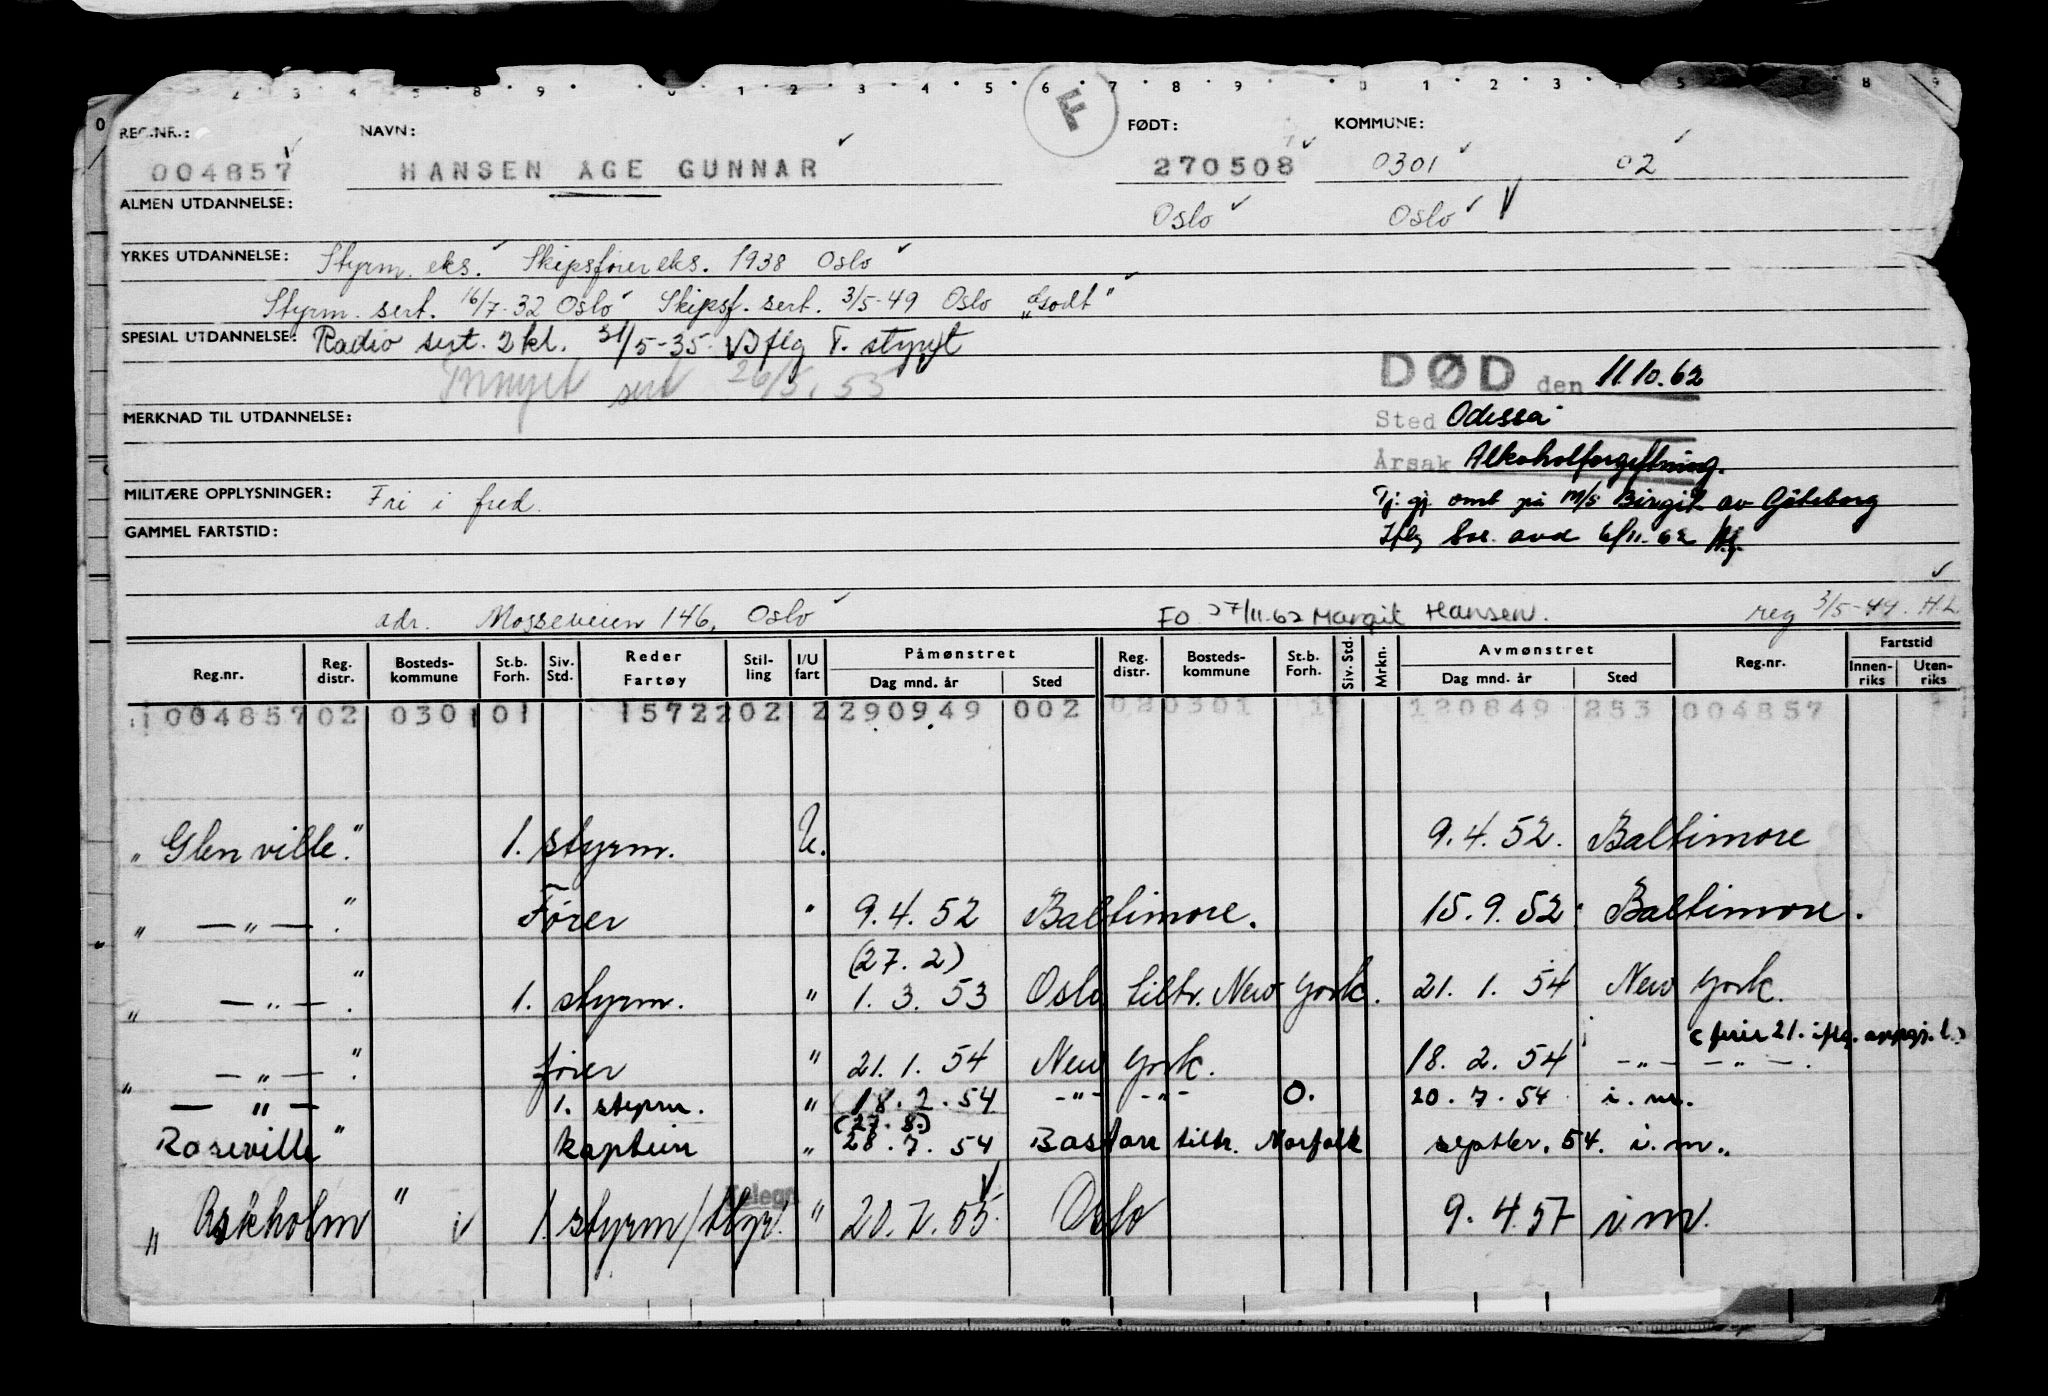 REG.NR.: NAVN: F FØDT: KOMMUNE:
004857 HANSEN ÅGE GUNNAR 270508 0301 02
ALMEN UTDANNELSE: Oslo Oslo
YRKES UTDANNELSE: Styrm. eks. Skipsfører eks. 1938 Oslo
Styrm. sert. 16/7-32 Oslo Skipsf. sert. 3/5-49 Oslo "Godt"
SPESIAL UTDANNELSE: Radio sert. 2 kl. 31/5-35.
sert 26/5.55
DØD den 11.10.62
MERKNAD TIL UTDANNELSE: Sted Odessa
Årsak Alkoholforgiftning.
MILITÆRE OPPLYSNINGER: Fri i fred. Tj. gj. omb på m/s Birgit av Göteborg
GAMMEL FARTSTID: Iflg avd 6/11.62
adr. Mosseveien 146, Oslo FO 27/11.62 Margit Hansen. reg 3/5-49. H.L
Reg.nr. Reg. distr. Bosteds- kommune St.b. Forh. Siv. Std. Reder Fartøy Stil- ling I/U fart Påmønstret Dag mnd. år Sted Reg. distr. Bosteds- kommune St.b. Forh. Siv. Std. Mrkn. Avmønstret Dag mnd. år Sted Reg.nr. Fartstid Innen- riks Uten- riks
004857 02 0301 01 15722 02 2 290949 002 02 0301 1 120849 253 004857
"Glenville." 1. styrm. U. 9.4.52. Baltimore
" — " — ." Fører " 9.4.52 Baltimore. 15.9.52. Baltimore.
(27.2)
" — " — ." 1. styrm. " 1.3.53 Oslo tiltr. New York. 21.1.54 New York.
(ferie 21. iflg. oppgj. l.)
" — " — ." fører " 21.1.54 New York. 18.2.54 —"— —"—.
" — " — 1. styrm. " 18.2.54 —"— —"— O. 20.7.54 i.m.
(27.8.)
Roseville" kaptein " 28.7.54 Boston tiltr. Norfolk septbr. 54. i.m.
Telegr.
"Askholm" 1. styrm/ " 20.7.55. Oslo 9.4.57 i m.